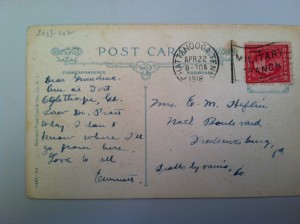 POST CARD
CORRESPONDENCE
CHATTANOOGA, TENN.
APR 22
8-30A
1918
MILITARY
BRANCH
Dear Grandma.
Am at Fort
Oglethorpe, Ga.
Saw Dr. Pratt
today. I don't
know where I'll
go from here.
Love to all
Emmett
Mrs. C. M. Heflin
Boulevard
Fredericksburg,
Va
Spottsylvania, Co